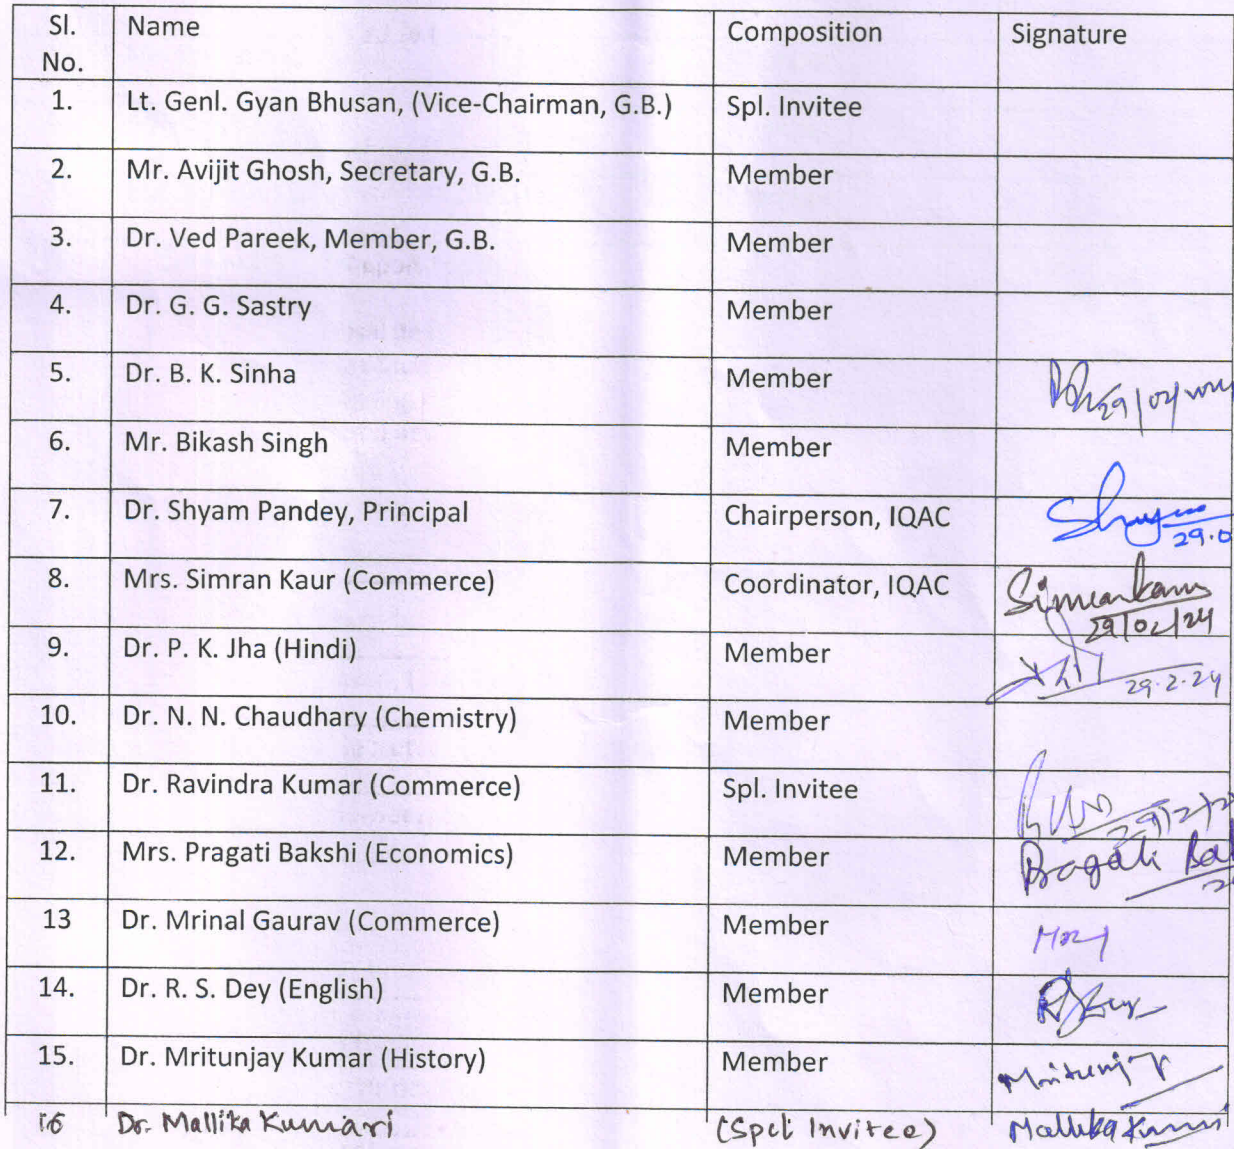 Sl. No. Name Composition Signature
1. Lt. Genl. Gyan Bhusan, (Vice-Chairman, G.B.) Spl. Invitee
2. Mr. Avijit Ghosh, Secretary, G.B. Member
3. Dr. Ved Pareek, Member, G.B. Member
4. Dr. G. G. Sastry Member
5. Dr. B. K. Sinha Member
6. Mr. Bikash Singh Member
7. Dr. Shyam Pandey, Principal Chairperson, IQAC Shyam
29.0
8. Mrs. Simran Kaur (Commerce) Coordinator, IQAC Simrankaur
29/02/24
9. Dr. P. K. Jha (Hindi) Member 29.2.24
10. Dr. N. N. Chaudhary (Chemistry) Member
11. Dr. Ravindra Kumar (Commerce) Spl. Invitee 29/2/2
12. Mrs. Pragati Bakshi (Economics) Member Pragati Bak
13 Dr. Mrinal Gaurav (Commerce) Member
14. Dr. R. S. Dey (English) Member
15. Dr. Mritunjay Kumar (History) Member Mritunjay
16 Dr. Mallika Kumari (Spcl Invitee) Mallika Kumari